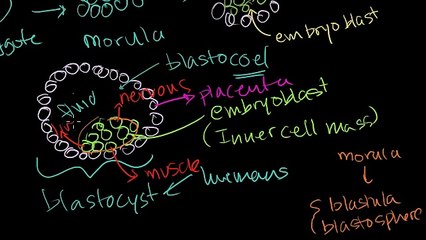 morula
embryoblast
blastocoel
nervous
placenta
fluid
embryoblast
(Inner cell mass)
muscle
humans
blastocyst
morula
blastula
(blastosphere